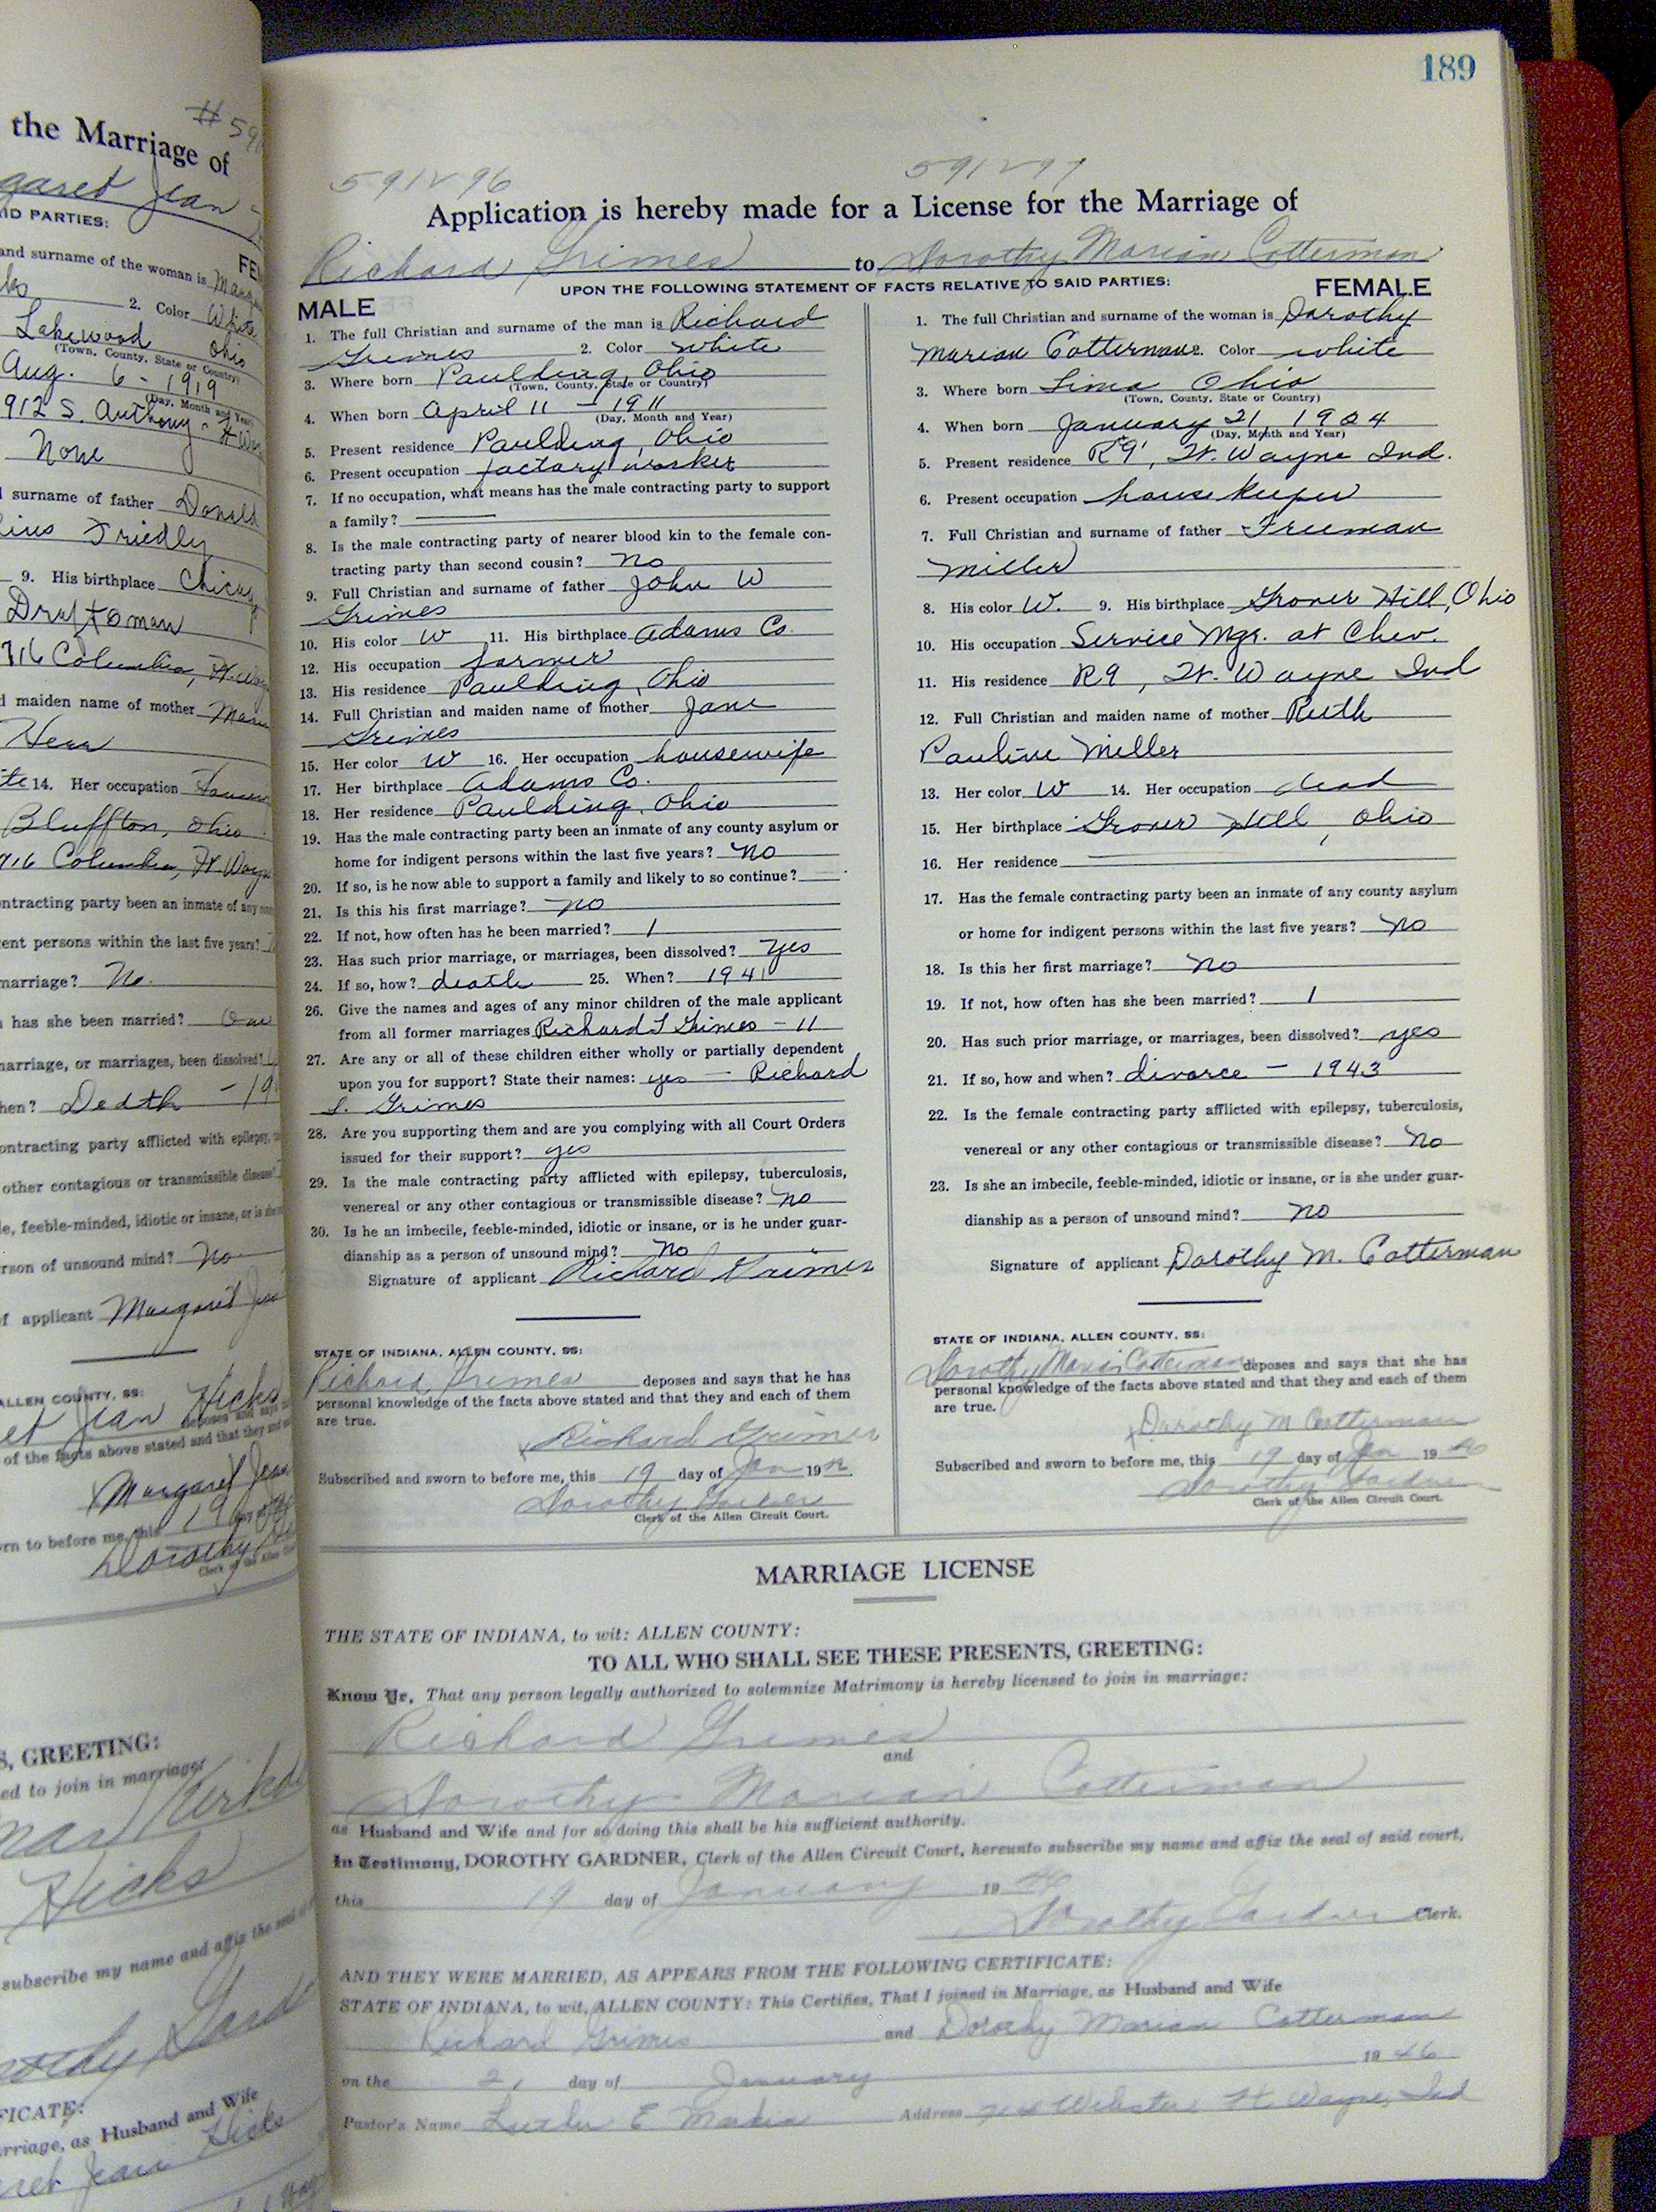 189
the Marriage of
Jean
ID PARTIES:
and surname of the woman is
2. Color White
Lakewood Ohio
(Town, County, State or Country)
Aug. 6 - 1919
(Day, Month and Year)
912 S. Anthony
None
surname of father Donald
Friedly
9. His birthplace
Draftsman
716 Columbia, Ft.
maiden name of mother
14. Her occupation
Bluffton, Ohio
Columbia, Ft. Wayn
ntracting party been an inmate of any
ent persons within the last five years?
marriage? No.
has she been married?
marriage, or marriages, been dissolved?
hen? Death - 19
ontracting party afflicted with epilepsy,
other contagious or transmissible disease?
le, feeble-minded, idiotic or insane, or is she
rson of unsound mind? No
f applicant Margaret Jean
ALLEN COUNTY, SS:
et Jean Hicks
deposes and says
of the facts above stated and that they and
Margaret Jean
rn to before me, this 19
Dorothy
Clerk of the Allen
S, GREETING:
ed to join in marriage:
Hicks
subscribe my name and affix the seal of
FICATE:
rriage, as Husband and Wife
ret Jean Hicks
591296 591297
Application is hereby made for a License for the Marriage of
Richard Grimes to Dorothy Marian Cotterman
UPON THE FOLLOWING STATEMENT OF FACTS RELATIVE TO SAID PARTIES:
MALE
1. The full Christian and surname of the man is Richard
Grimes 2. Color white
3. Where born Paulding, Ohio
(Town, County, State or Country)
4. When born April 11 - 1911
(Day, Month and Year)
5. Present residence Paulding, Ohio
6. Present occupation factory worker
7. If no occupation, what means has the male contracting party to support
a family?
8. Is the male contracting party of nearer blood kin to the female con-
tracting party than second cousin? no
9. Full Christian and surname of father John W
Grimes
10. His color W 11. His birthplace Adams Co.
12. His occupation farmer
13. His residence Paulding, Ohio
14. Full Christian and maiden name of mother Jane
Grimes
15. Her color W 16. Her occupation housewife
17. Her birthplace Adams Co.
18. Her residence Paulding, Ohio
19. Has the male contracting party been an inmate of any county asylum or
home for indigent persons within the last five years? no
20. If so, is he now able to support a family and likely to so continue?
21. Is this his first marriage? no
22. If not, how often has he been married? 1
23. Has such prior marriage, or marriages, been dissolved? yes
24. If so, how? death 25. When? 1941
26. Give the names and ages of any minor children of the male applicant
from all former marriages Richard L Grimes - 11
27. Are any or all of these children either wholly or partially dependent
upon you for support? State their names: yes - Richard
L. Grimes
28. Are you supporting them and are you complying with all Court Orders
issued for their support? yes
29. Is the male contracting party afflicted with epilepsy, tuberculosis,
venereal or any other contagious or transmissible disease? no
30. Is he an imbecile, feeble-minded, idiotic or insane, or is he under guar-
dianship as a person of unsound mind? no
Signature of applicant Richard Grimes
STATE OF INDIANA, ALLEN COUNTY, SS:
Richard Grimes deposes and says that he has
personal knowledge of the facts above stated and that they and each of them
are true.
Richard Grimes
Subscribed and sworn to before me, this 19 day of Jan 19
Dorothy Gardner
Clerk of the Allen Circuit Court.
FEMALE
1. The full Christian and surname of the woman is Dorothy
Marian Cotterman 2. Color white
3. Where born Lima Ohio
(Town, County, State or Country)
4. When born January 21 1924
(Day, Month and Year)
5. Present residence R9, Ft. Wayne Ind.
6. Present occupation housekeeper
7. Full Christian and surname of father Freeman
Miller
8. His color W. 9. His birthplace Grover Hill, Ohio
10. His occupation Service Mgr. at Chev.
11. His residence R9, Ft. Wayne Ind
12. Full Christian and maiden name of mother Ruth
Pauline Miller
13. Her color W 14. Her occupation dead
15. Her birthplace Grover Hill, Ohio
16. Her residence
17. Has the female contracting party been an inmate of any county asylum
or home for indigent persons within the last five years? no
18. Is this her first marriage? no
19. If not, how often has she been married? 1
20. Has such prior marriage, or marriages, been dissolved? yes
21. If so, how and when? divorce - 1943
22. Is the female contracting party afflicted with epilepsy, tuberculosis,
venereal or any other contagious or transmissible disease? no
23. Is she an imbecile, feeble-minded, idiotic or insane, or is she under guar-
dianship as a person of unsound mind? no
Signature of applicant Dorothy M. Cotterman
STATE OF INDIANA, ALLEN COUNTY, SS:
Dorothy Marian Cotterman deposes and says that she has
personal knowledge of the facts above stated and that they and each of them
are true.
Dorothy M Cotterman
Subscribed and sworn to before me, this 19 day of Jan 1946
Dorothy Gardner
Clerk of the Allen Circuit Court.
MARRIAGE LICENSE
THE STATE OF INDIANA, to wit: ALLEN COUNTY:
TO ALL WHO SHALL SEE THESE PRESENTS, GREETING:
Know Ye, That any person legally authorized to solemnize Matrimony is hereby licensed to join in marriage:
Richard Grimes
and
Dorothy Marian Cotterman
as Husband and Wife and for so doing this shall be his sufficient authority.
In Testimony, DOROTHY GARDNER, Clerk of the Allen Circuit Court, hereunto subscribe my name and affix the seal of said court,
this 19 day of January 1946
Dorothy Gardner Clerk.
AND THEY WERE MARRIED, AS APPEARS FROM THE FOLLOWING CERTIFICATE:
STATE OF INDIANA, to wit, ALLEN COUNTY: This Certifies, That I joined in Marriage, as Husband and Wife
Richard Grimes and Dorothy Marian Cotterman
on the 21 day of January 1946
Pastor's Name Luther E Address Webster Ft Wayne, Ind